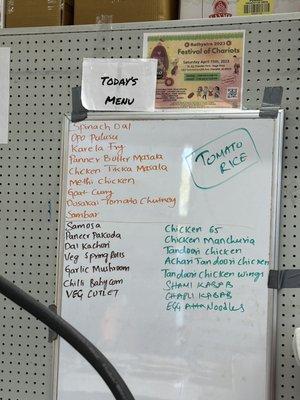 Rathyatra 2023
Festival of Chariots
Saturday April 15th, 2023
TODAY'S
MENU
Spinach Dal
Opo Pulusu
Karela Fry
Panner Butter Masala
Chicken Tikka Masala
Methi Chicken
Goat Curry
Dosakai Tomato Chutney
Sambar
TOMATO
RICE
Samosa
Paneer Pakoda
Dal Kachori
Veg Spring Rolls
Garlic Mushroom
Chilli Babycorn
VEG CUTLET
Chicken 65
Chicken Manchuria
Tandoori Chicken
Achari Tandoori chicken
Tandoori chicken wings
SHAMI KABAB
CHAPLI KABAB
EGG Noodles